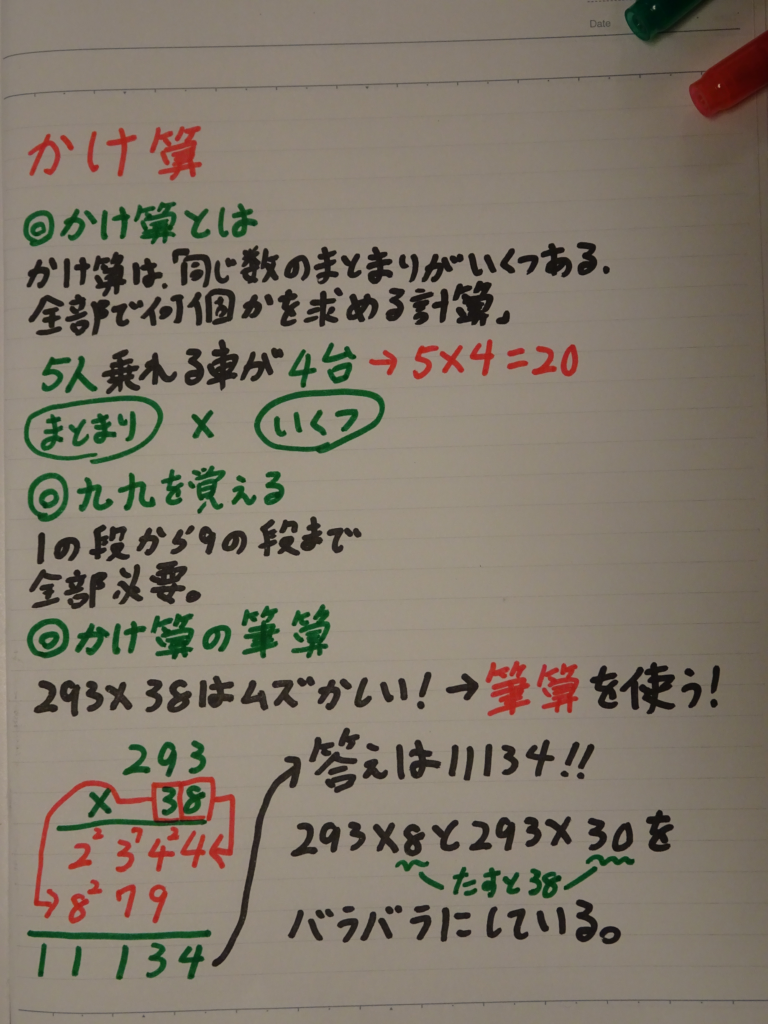 Date
かけ算
◎かけ算とは
かけ算は、「同じ数のまとまりがいくつある、
全部で何個かを求める計算。」
5人乗れる車が4台→5×4=20
まとまり × いくつ
◎九九を覚える
1の段から9の段まで
全部必要。
◎かけ算の筆算
293×38はムズかしい!→筆算を使う!
293
× 38
2²3⁷4²4
8²79
11134
答えは11134!!
293×8と293×30を
たすと38
バラバラにしている。